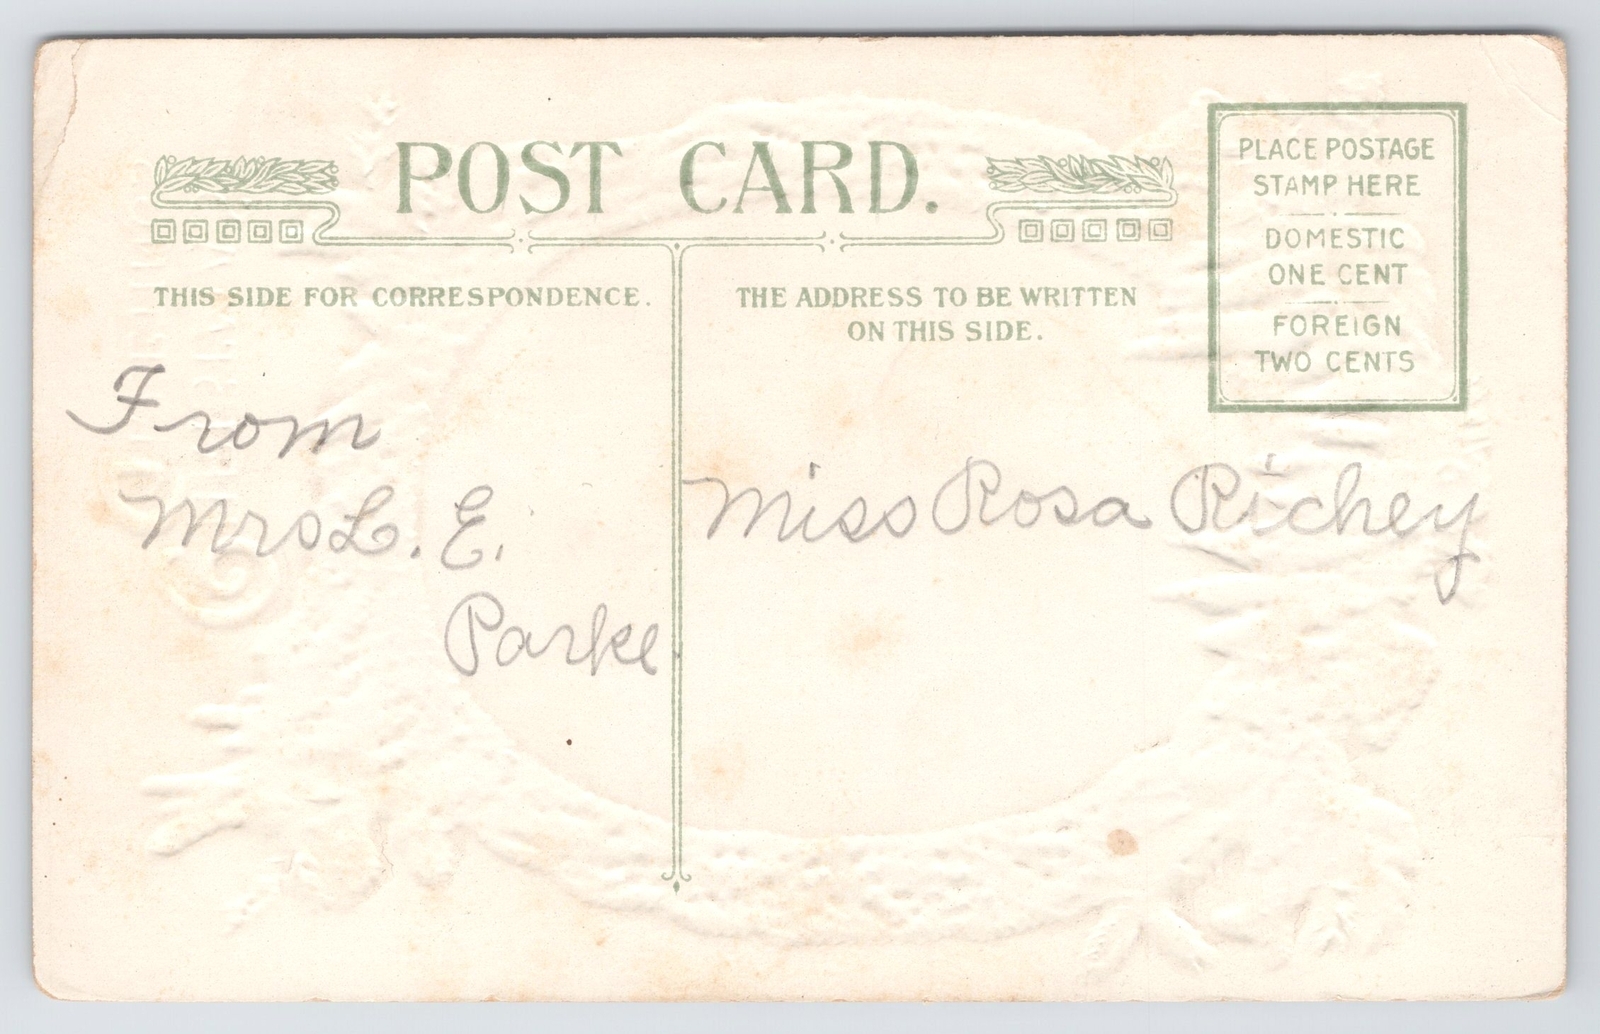 POST CARD.
THIS SIDE FOR CORRESPONDENCE.
THE ADDRESS TO BE WRITTEN
ON THIS SIDE.
PLACE POSTAGE
STAMP HERE
DOMESTIC
ONE CENT
FOREIGN
TWO CENTS
From
Mrs L. E.
Parke
Miss Rosa Richey